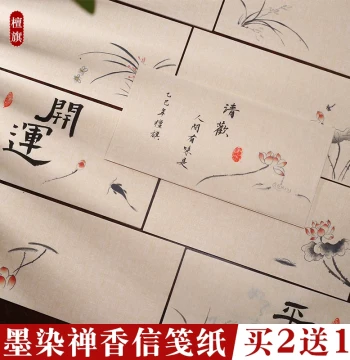 檀旗
開
運
清歡
人間有味是
乙巳年檀旗
墨染禅香信笺纸
买2送1